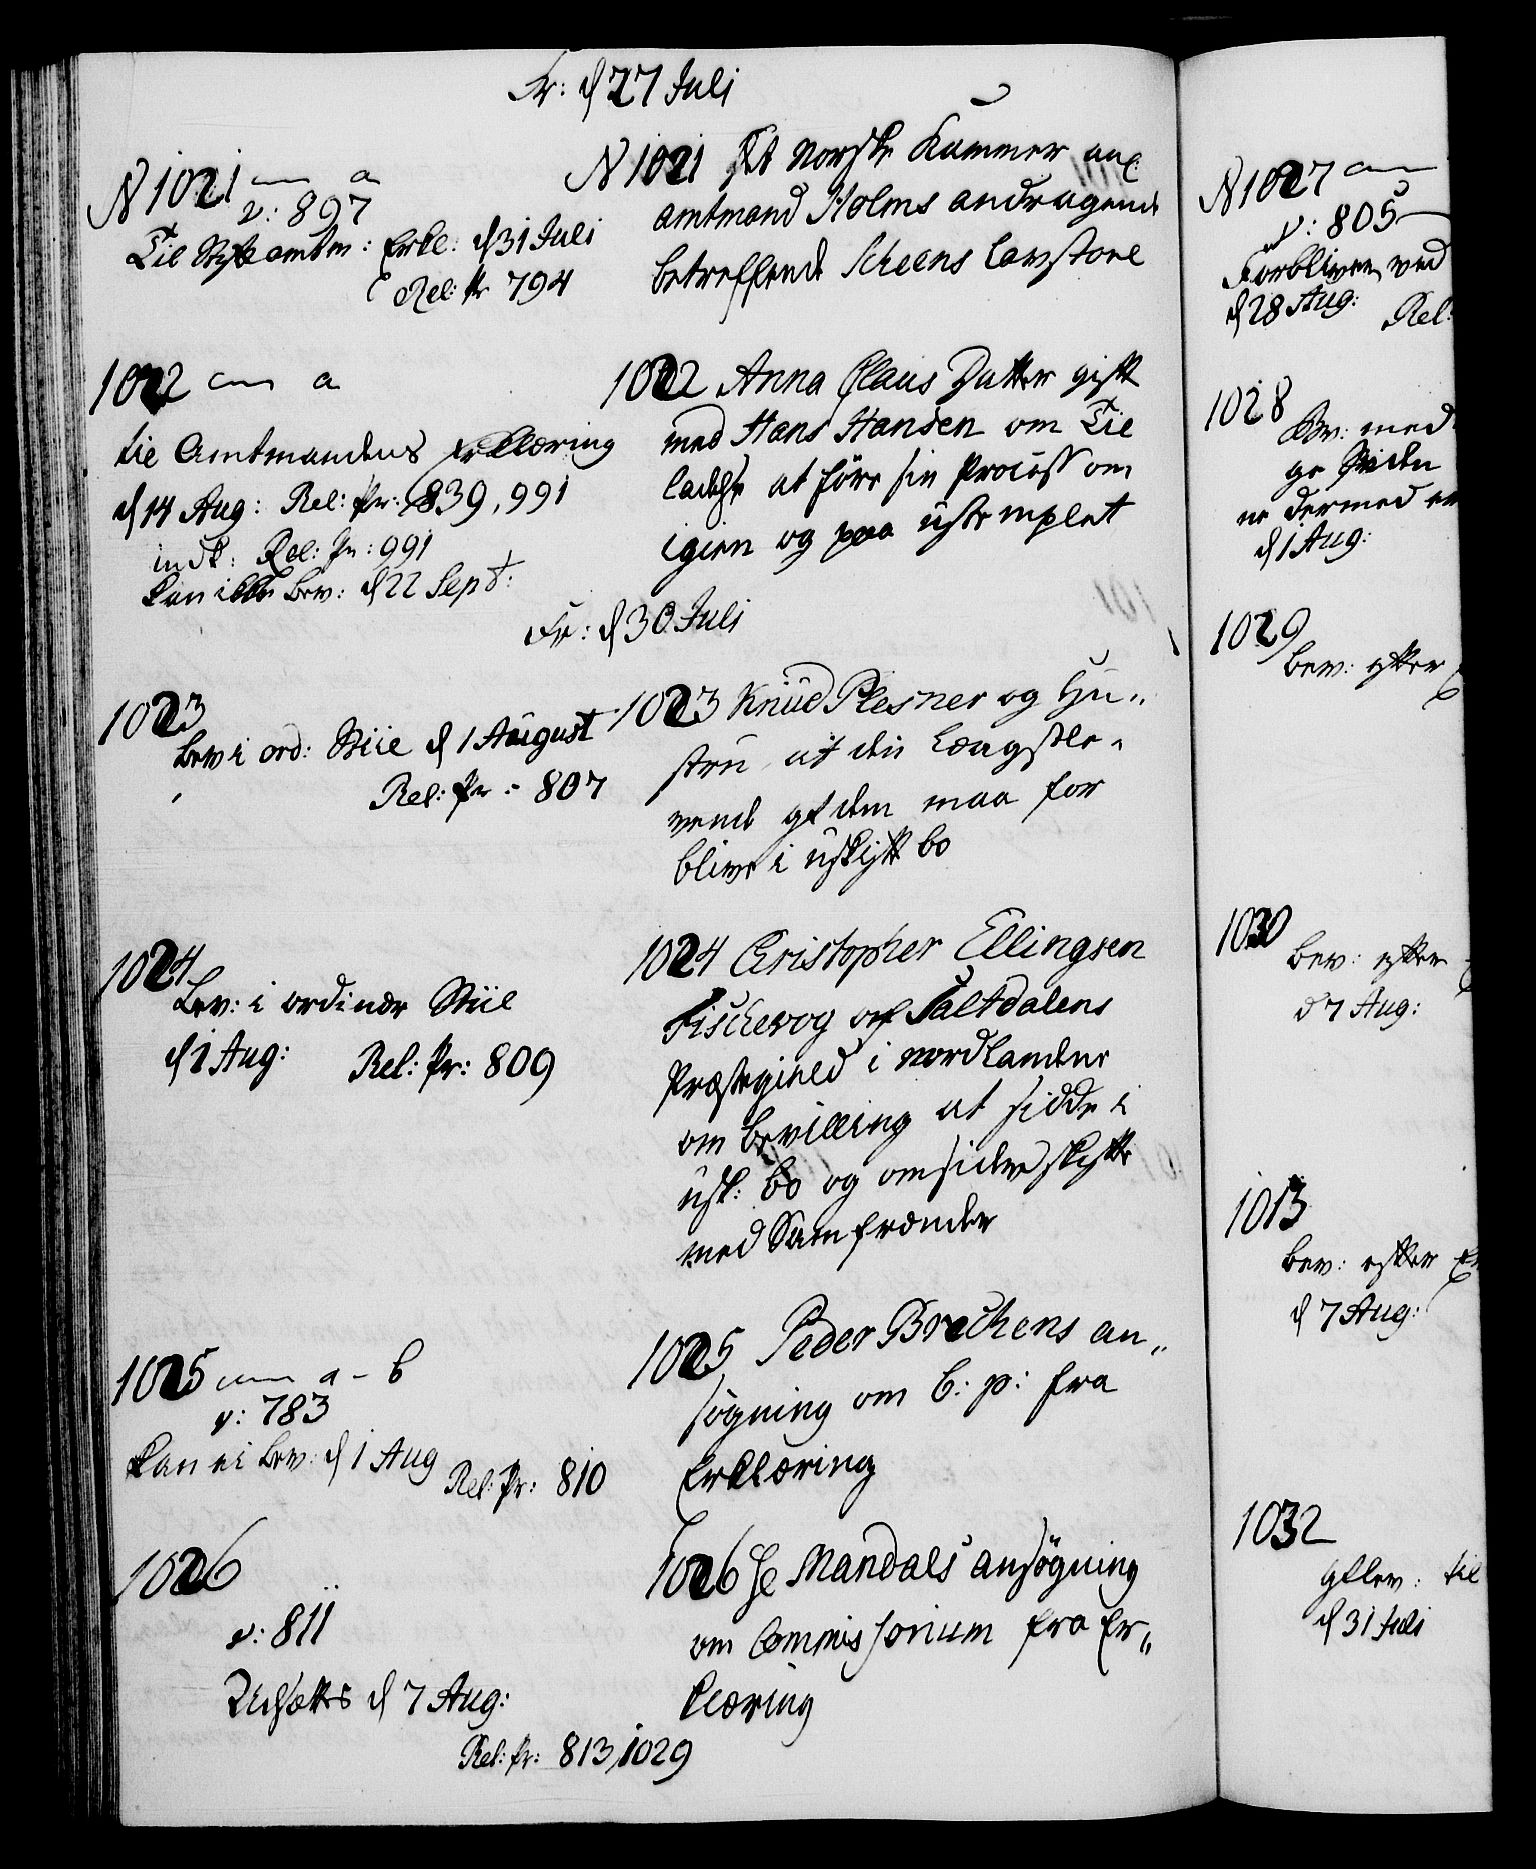 Fr: d 27 Juli
N 1021 cum a
v: 897
Til Stiftamtm: Erkl: d 31 Juli
Rel: Pr 794
N 1021 Et Norske Kammer anl
amtmand Holms andragende
betreffende Scheens Lavstoel
1022 cum a
til Amtmandens Erklæring
d 14 Aug: Rel: Pr: 839, 991
indk: Rel: Pr: 991
kan ikke Bev: d 22 Sept:
1022 Anna Claus Datter gift
med Hans Hansen om Til
ladelse at føre sin Process om
igien og paa ustemplet
Fr: d 30 Juli
1023
Bev i ord: Stiil d 1 August
Rel: Pr: 807
1023 Knud Plesner og Hu„
stru at den Længstle„
vende af dem maa for
blive i uskift bo
1024
Bev: i ordinær Stiil
d 1 Aug: Rel: Pr: 809
1024 Christopher Ellingsen
Fischevog af Saltdalens
Præstegield i Nordlandene
om bevilling at sidde i
usk: bo og omsider skifte
med Samfrænder
1025 cum a - b
v: 783
kan ei Bev: d 1 Aug
Rel: Pr: 810
1025 Peder Brechens an„
søgning om b: p: fra
Erklæring
1026
v: 811
Udsættes d 7 Aug:
Rel: Pr: 813, 1029
1026 Hr Mandals ansøgning
om Commissorium fra Er„
klæring
N 1027 cum
v: 805
Forbliver ved
d 28 Aug: Rel:
1028
Bev: med
ge Siden
ne dermed
d 1 Aug:
1029
Bev: efter
1030
Bev: efter
d 7 Aug:
1013
Bev: efter
d 7 Aug:
1032
aflev: til
d 31 Juli